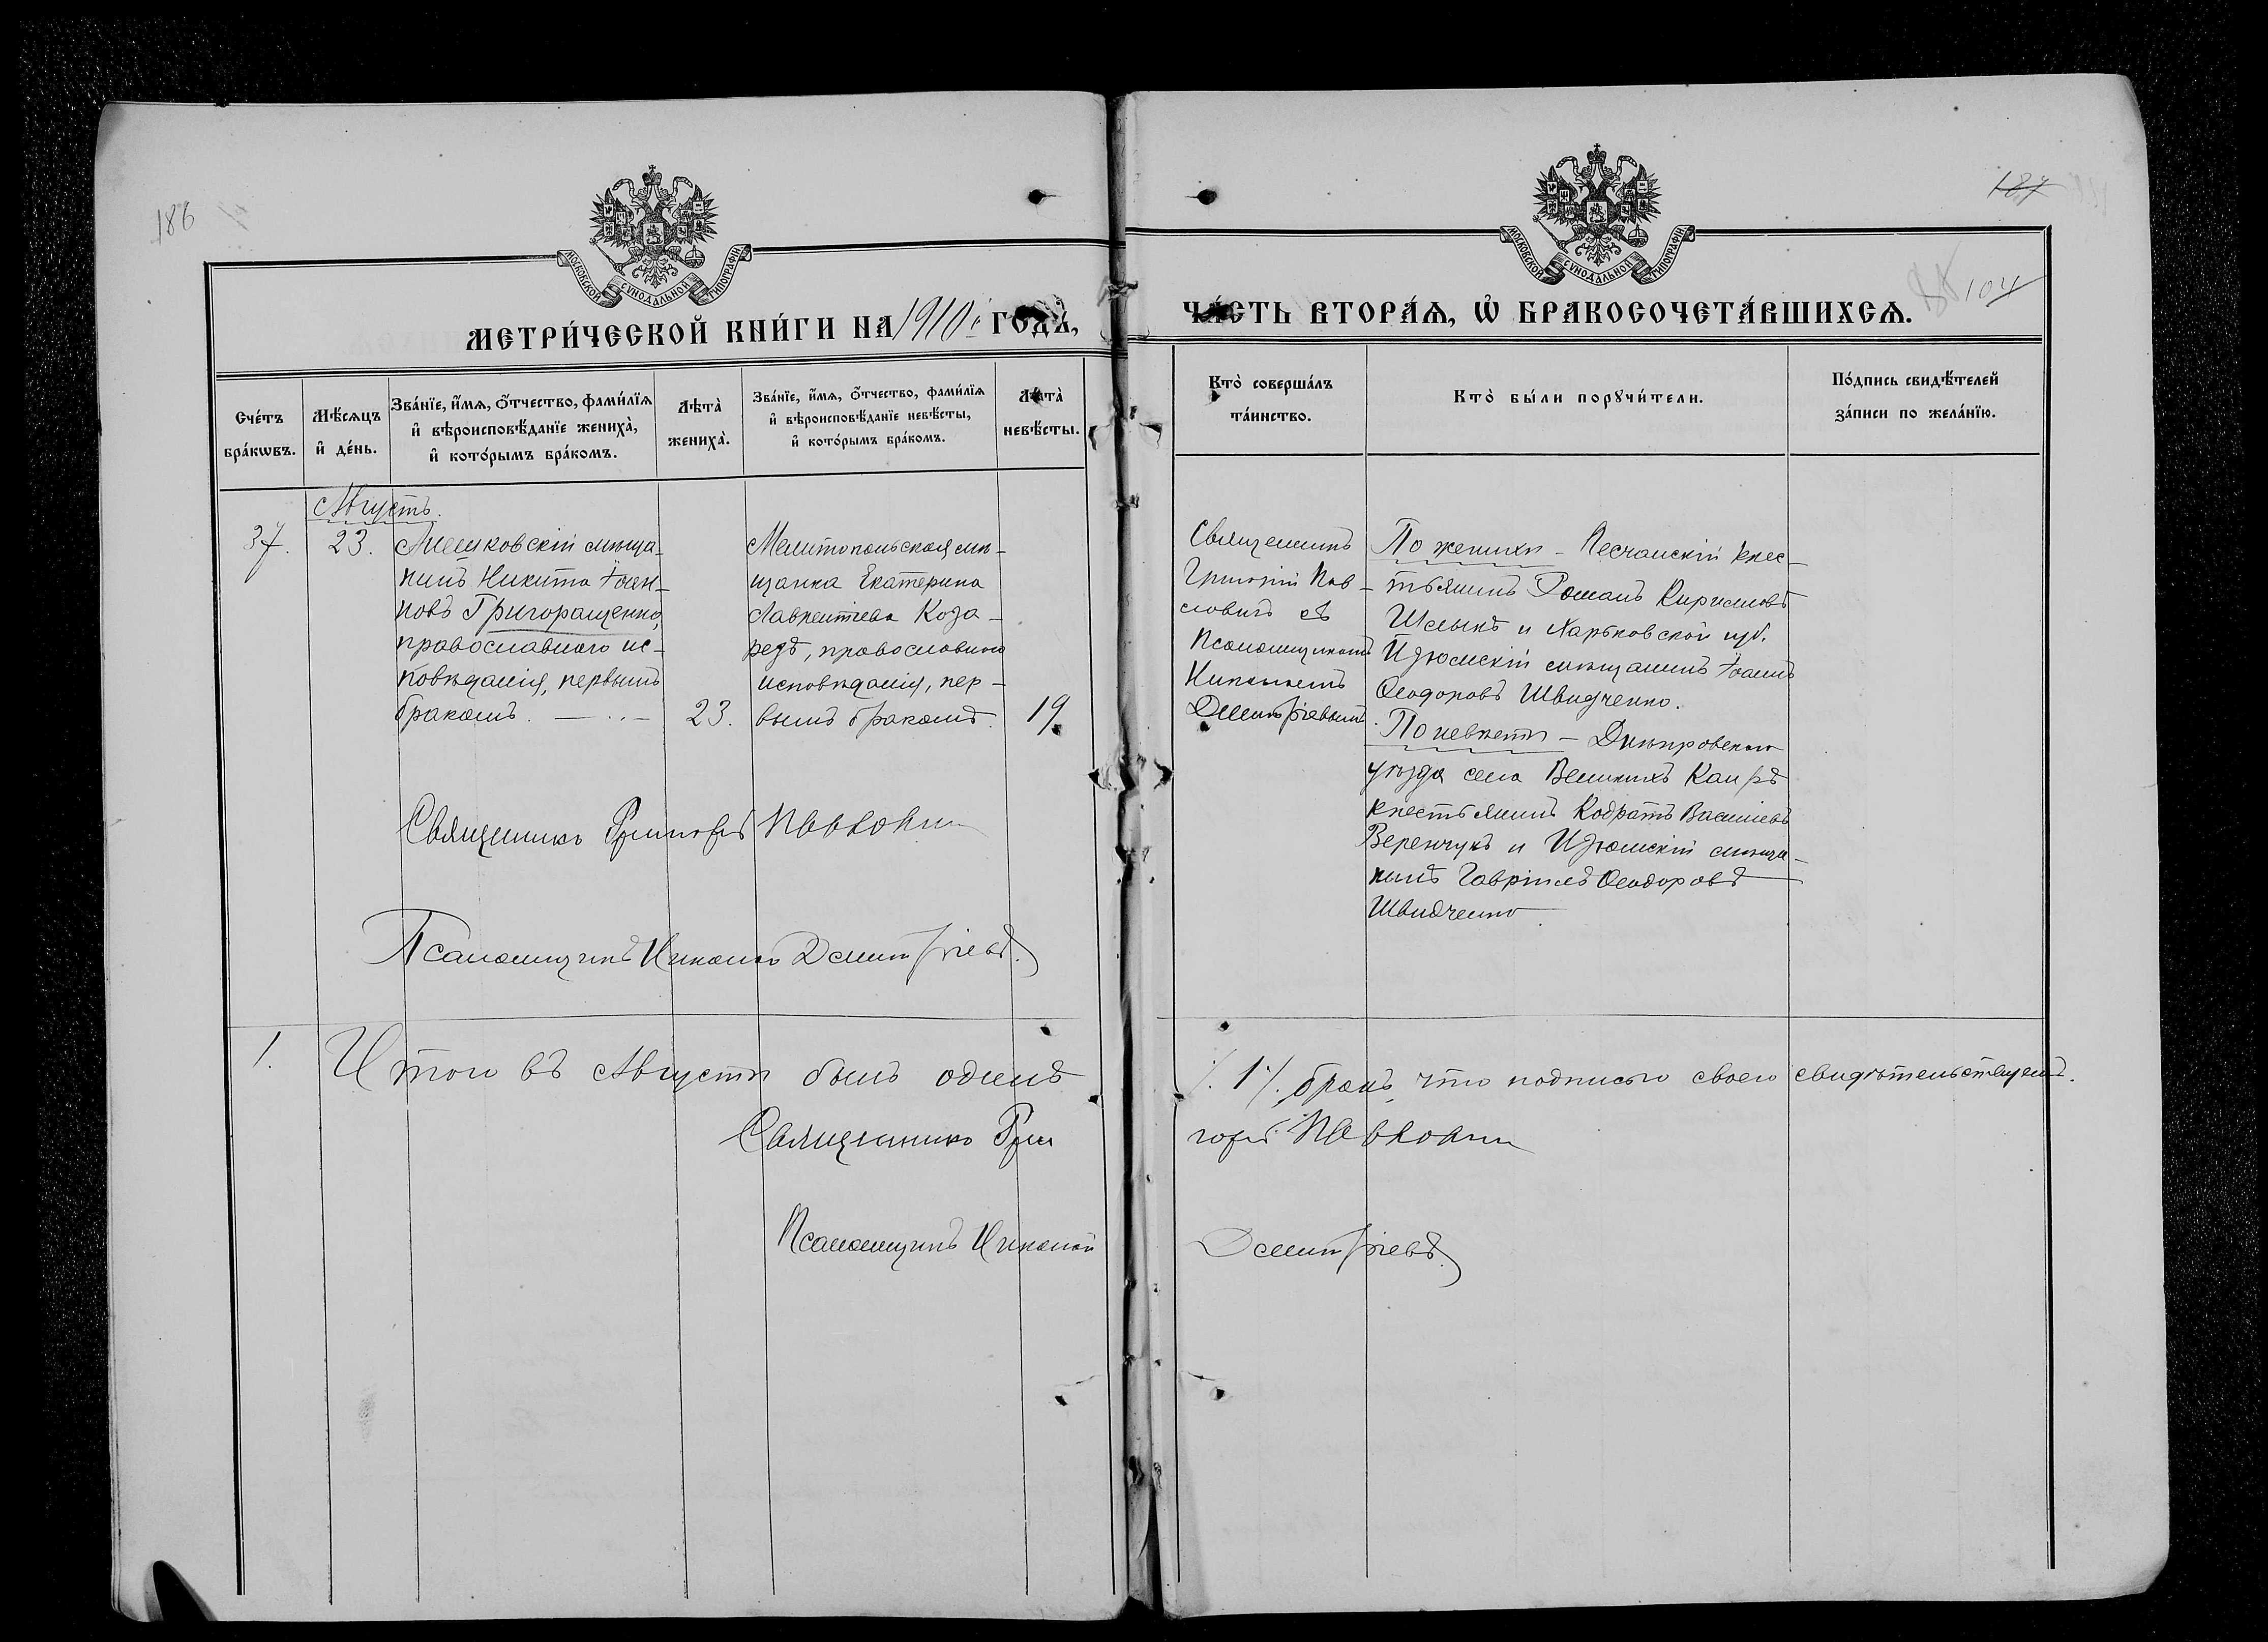 186
МОСКОВСКОЙ СѴНОДАЛЬНОЙ ТИПОГРАФІИ
МЕТРИ́ЧЕСКОЙ КНИ́ГИ НА 1910й ГОДЪ,
Сче́тъ бра́кѡвъ.
Мѣ́сяцъ и҆ де́нь.
Зва́нїе, и҆́мѧ, ѻ҆́тчество, фами́лїѧ
и҆ вѣроисповѣ́данїе жениха̀,
и҆ кото́рымъ бра́комъ.
Лѣта̀ жениха̀.
Зва́нїе, и҆́мѧ, ѻ҆́тчество, фами́лїѧ
и҆ вѣроисповѣ́данїе невѣ́сты,
и҆ кото́рымъ бра́комъ.
Лѣта̀ невѣ́сты.
Августъ.
37.
23.
Алешковскій мѣща-
нинъ Никита Іоан-
новъ Григоращенко,
православнаго ис-
повѣданія, первымъ
бракомъ.
23.
Мелитопольская мѣ-
щанка Екатерина
Лаврентіева Коза-
редъ, православнаго
исповѣданія, пер-
вымъ бракомъ.
19.
Священникъ Григорій Павловичъ
Псаломщикъ Николай Дмитріевъ.
1.
Итого въ Августѣ былъ одинъ
Священникъ Гри
Псаломщикъ Николай
187
104
МОСКОВСКОЙ СѴНОДАЛЬНОЙ ТИПОГРАФІИ
ЧА́СТЬ ВТОРА́Ѧ, Ѽ БРАКОСОЧЕТА́ВШИХСѦ.
Кто̀ соверша́лъ
та́инство.
Кто̀ бы́ли порꙋчи́тели.
По́дпись свидѣ́телей
за́писи по жела́нїю.
Священникъ
Григорій Пав-
ловичъ съ
Псаломщикомъ
Николаемъ
Дмитріевымъ.
По женихѣ – Песчанскій крес-
тьянинъ Романъ Кирилловъ
Шелыкъ и Харьковской губ.
Изюмскій мѣщанинъ Іоаннъ
Ѳеодоровъ Швидченко.
По невѣстѣ – Днѣпровскаго
уѣзда села Великихъ Каиръ
крестьянинъ Кодратъ Василіевъ
Веренчукъ и Изюмскій мѣща-
нинъ Гавріилъ Ѳеодоровъ
Швидченко.
/. 1 /. бракъ, что подписью своею свидѣтельствуемъ.
горій Павловичъ
Дмитріевъ.